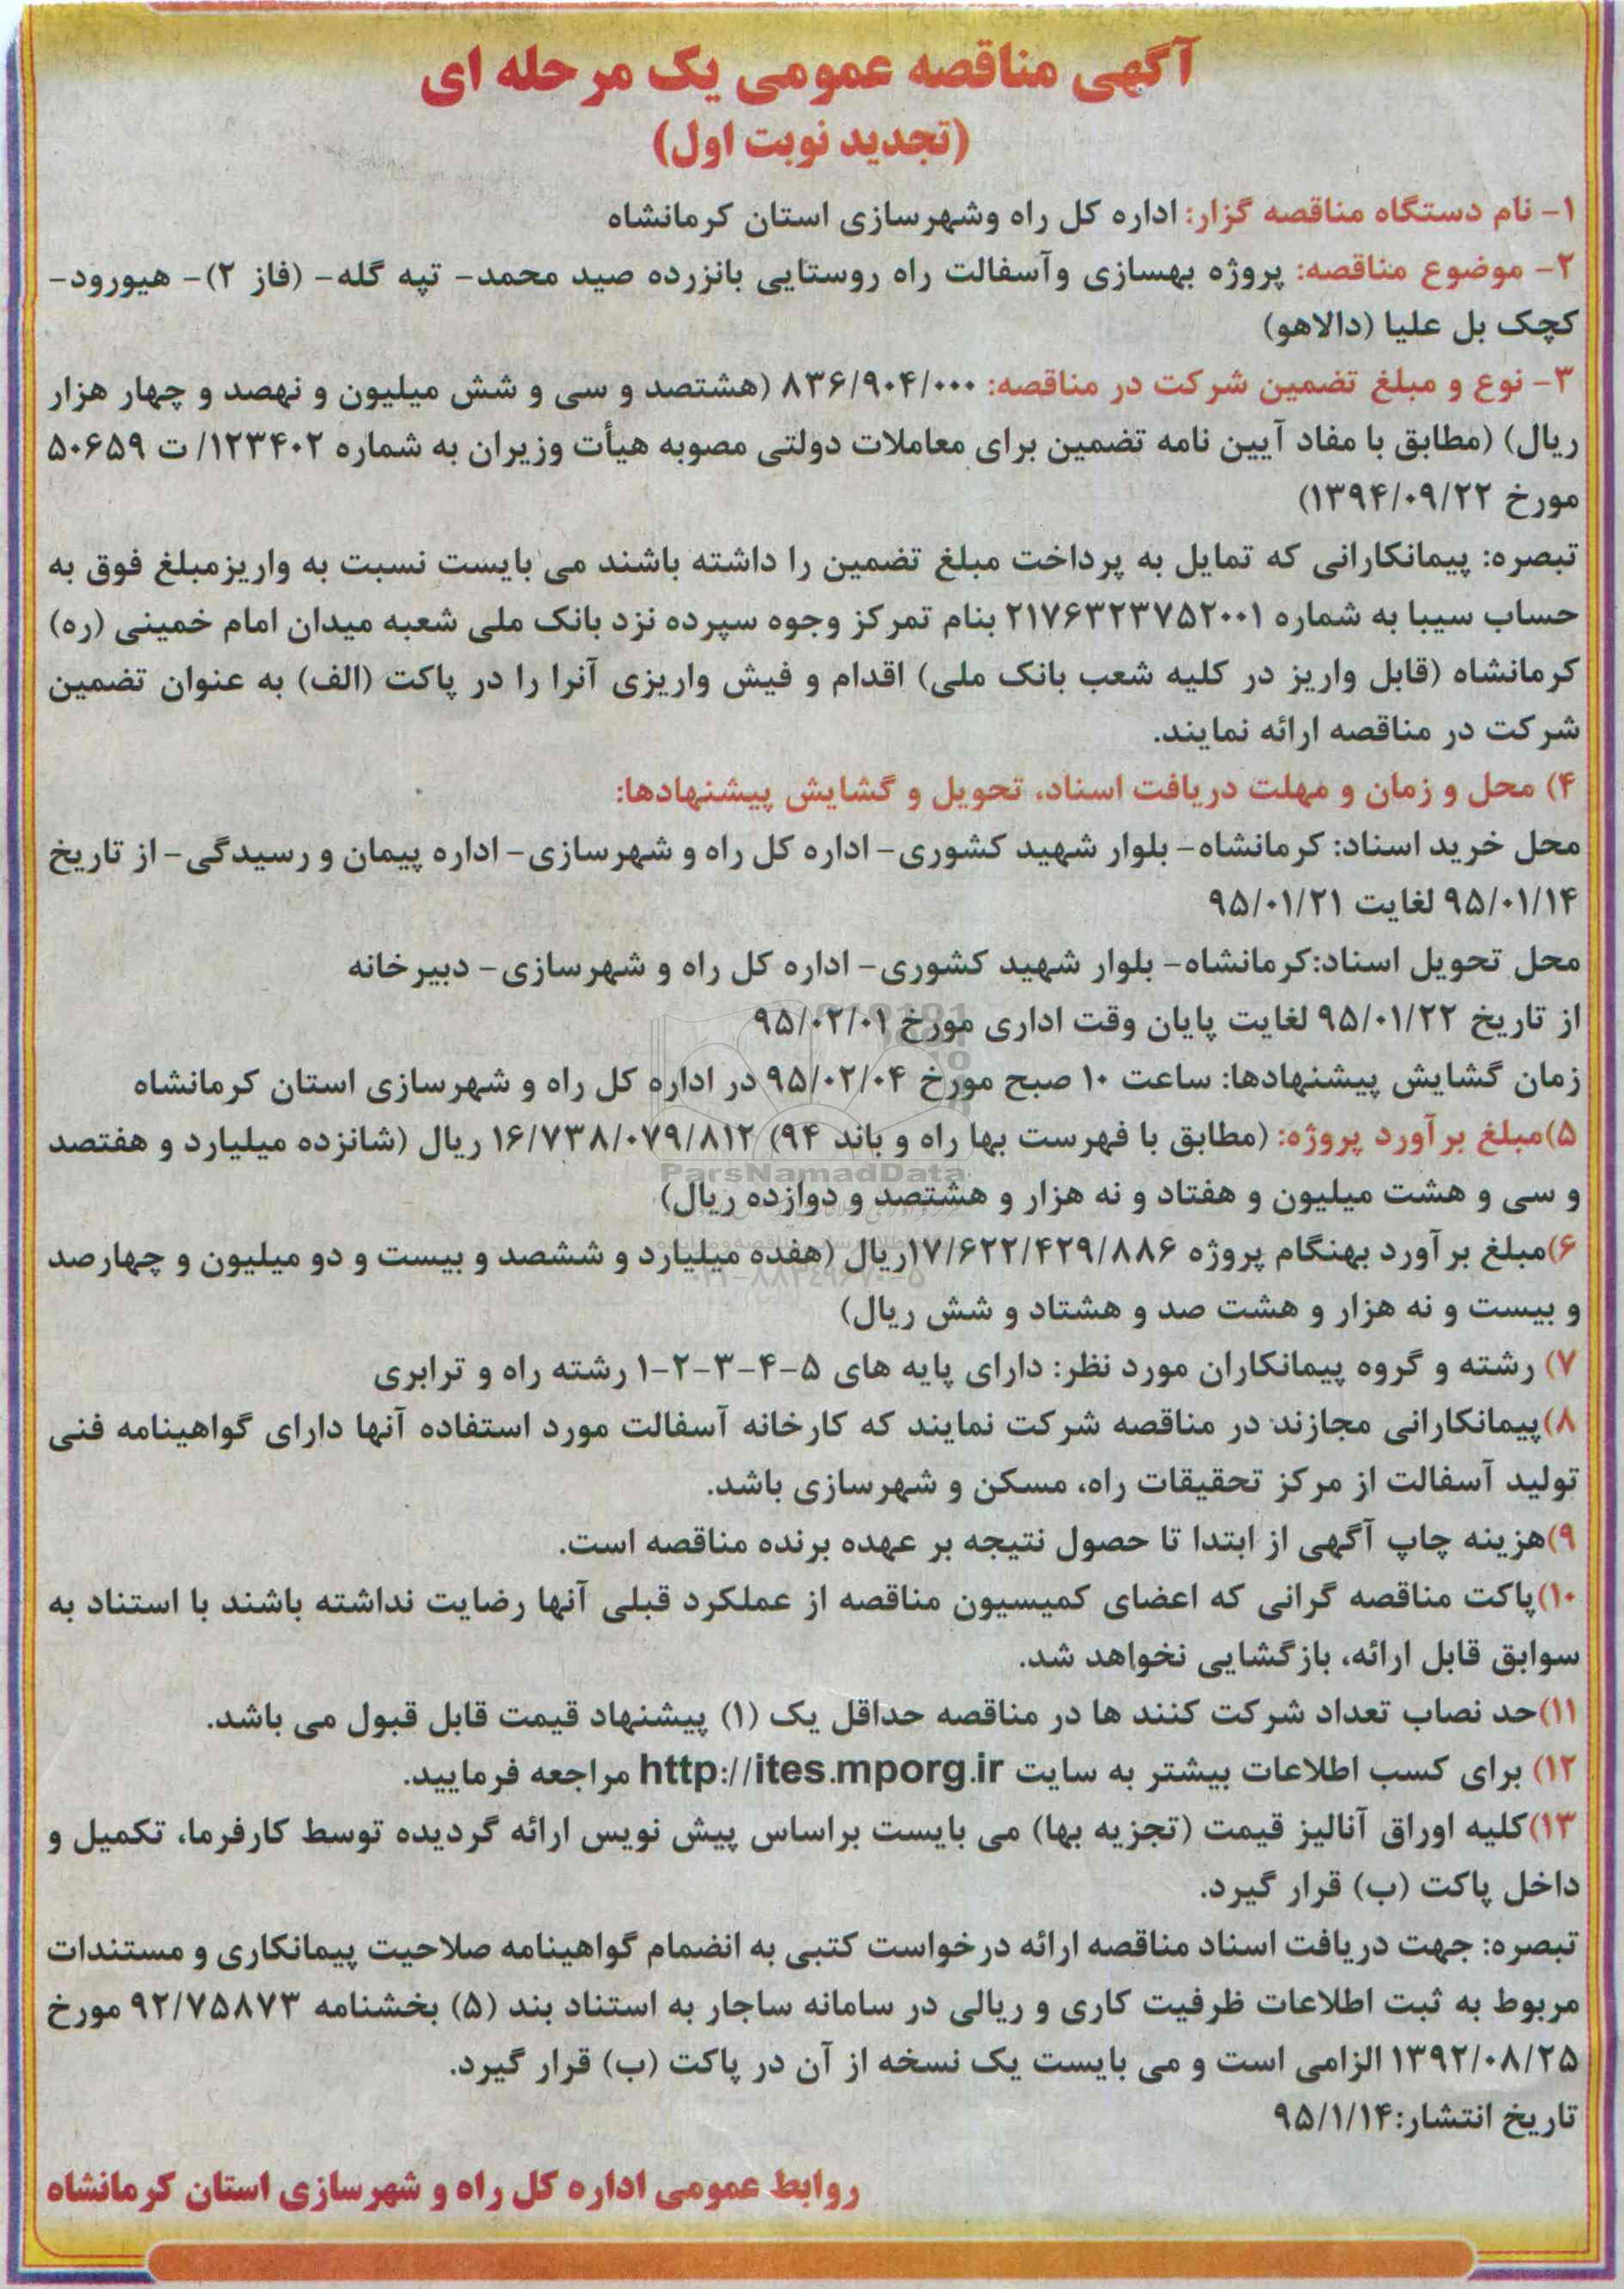 آگهی مناقصه عمومی یک مرحله ای
(تجدید نوبت اول)
۱- نام دستگاه مناقصه گزار: اداره کل راه وشهرسازی استان کرمانشاه
۲- موضوع مناقصه: پروژه بهسازی وآسفالت راه روستایی بانزرده صید محمد- تپه گله- (فاز ۲)- هیورود-
کچک بل علیا (دالاهو)
۳- نوع و مبلغ تضمین شرکت در مناقصه: ۸۳۶/۹۰۴/۰۰۰ (هشتصد و سی و شش میلیون و نهصد و چهار هزار
ریال) (مطابق با مفاد آیین نامه تضمین برای معاملات دولتی مصوبه هیأت وزیران به شماره ۱۲۳۴۰۲/ ت ۵۰۶۵۹
مورخ ۱۳۹۴/۰۹/۲۲)
تبصره: پیمانکارانی که تمایل به پرداخت مبلغ تضمین را داشته باشند می بایست نسبت به واریزمبلغ فوق به
حساب سیبا به شماره ۲۱۷۶۳۲۳۷۵۲۰۰۱ بنام تمرکز وجوه سپرده نزد بانک ملی شعبه میدان امام خمینی (ره)
کرمانشاه (قابل واریز در کلیه شعب بانک ملی) اقدام و فیش واریزی آنرا را در پاکت (الف) به عنوان تضمین
شرکت در مناقصه ارائه نمایند.
۴) محل و زمان و مهلت دریافت اسناد، تحویل و گشایش پیشنهادها:
محل خرید اسناد: کرمانشاه- بلوار شهید کشوری- اداره کل راه و شهرسازی- اداره پیمان و رسیدگی- از تاریخ
۹۵/۰۱/۱۴ لغایت ۹۵/۰۱/۲۱
محل تحویل اسناد:کرمانشاه- بلوار شهید کشوری- اداره کل راه و شهرسازی- دبیرخانه
از تاریخ ۹۵/۰۱/۲۲ لغایت پایان وقت اداری مورخ ۹۵/۰۲/۰۱
زمان گشایش پیشنهادها: ساعت ۱۰ صبح مورخ ۹۵/۰۲/۰۴ در اداره کل راه و شهرسازی استان کرمانشاه
۵)مبلغ برآورد پروژه: (مطابق با فهرست بها راه و باند ۹۴) ۱۶/۷۳۸/۰۷۹/۸۱۲ ریال (شانزده میلیارد و هفتصد
ParsNamadData
و سی و هشت میلیون و هفتاد و نه هزار و هشتصد و دوازده ریال)
۶)مبلغ برآورد بهنگام پروژه ۱۷/۶۲۲/۴۲۹/۸۸۶ریال (هفده میلیارد و ششصد و بیست و دو میلیون و چهارصد
و بیست و نه هزار و هشت صد و هشتاد و شش ریال)
۷) رشته و گروه پیمانکاران مورد نظر: دارای پایه های ۵-۴-۳-۲-۱ رشته راه و ترابری
۸)پیمانکارانی مجازند در مناقصه شرکت نمایند که کارخانه آسفالت مورد استفاده آنها دارای گواهینامه فنی
تولید آسفالت از مرکز تحقیقات راه، مسکن و شهرسازی باشد.
۹)هزینه چاپ آگهی از ابتدا تا حصول نتیجه بر عهده برنده مناقصه است.
۱۰)پاکت مناقصه گرانی که اعضای کمیسیون مناقصه از عملکرد قبلی آنها رضایت نداشته باشند با استناد به
سوابق قابل ارائه، بازگشایی نخواهد شد.
۱۱)حد نصاب تعداد شرکت کنند ها در مناقصه حداقل یک (۱) پیشنهاد قیمت قابل قبول می باشد.
۱۲) برای کسب اطلاعات بیشتر به سایت http://ites.mporg.ir مراجعه فرمایید.
۱۳)کلیه اوراق آنالیز قیمت (تجزیه بها) می بایست براساس پیش نویس ارائه گردیده توسط کارفرما، تکمیل و
داخل پاکت (ب) قرار گیرد.
تبصره: جهت دریافت اسناد مناقصه ارائه درخواست کتبی به انضمام گواهینامه صلاحیت پیمانکاری و مستندات
مربوط به ثبت اطلاعات ظرفیت کاری و ریالی در سامانه ساجار به استناد بند (۵) بخشنامه ۹۲/۷۵۸۷۳ مورخ
۱۳۹۲/۰۸/۲۵ الزامی است و می بایست یک نسخه از آن در پاکت (ب) قرار گیرد.
تاریخ انتشار:۹۵/۱/۱۴
روابط عمومی اداره کل راه و شهرسازی استان کرمانشاه